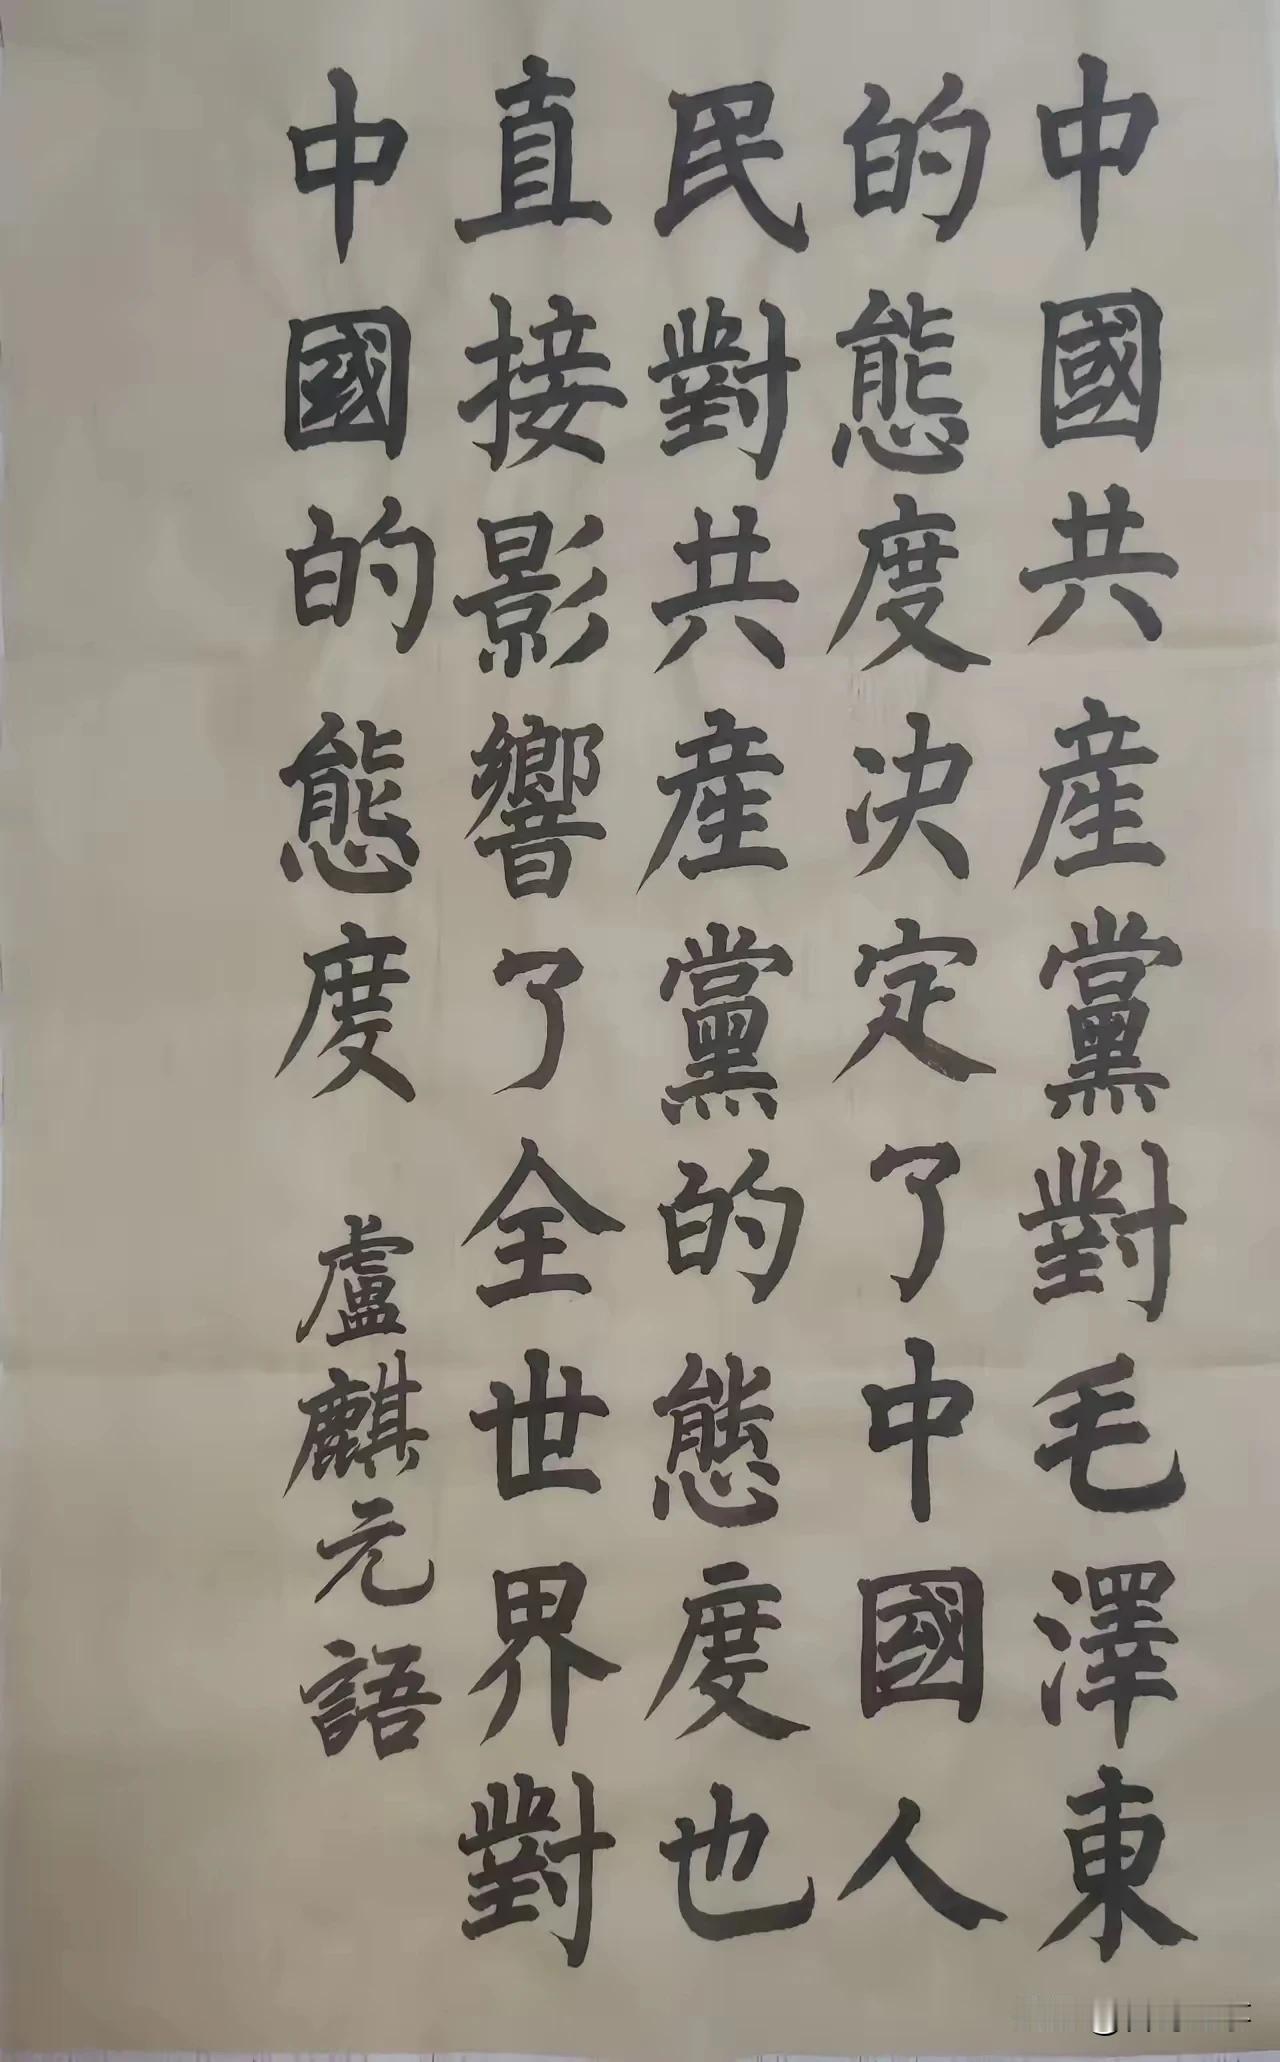 中國共産黨對毛澤東
的態度決定了中國人
民對共産黨的態度也
直接影響了全世界對
中國的態度
盧麒元語